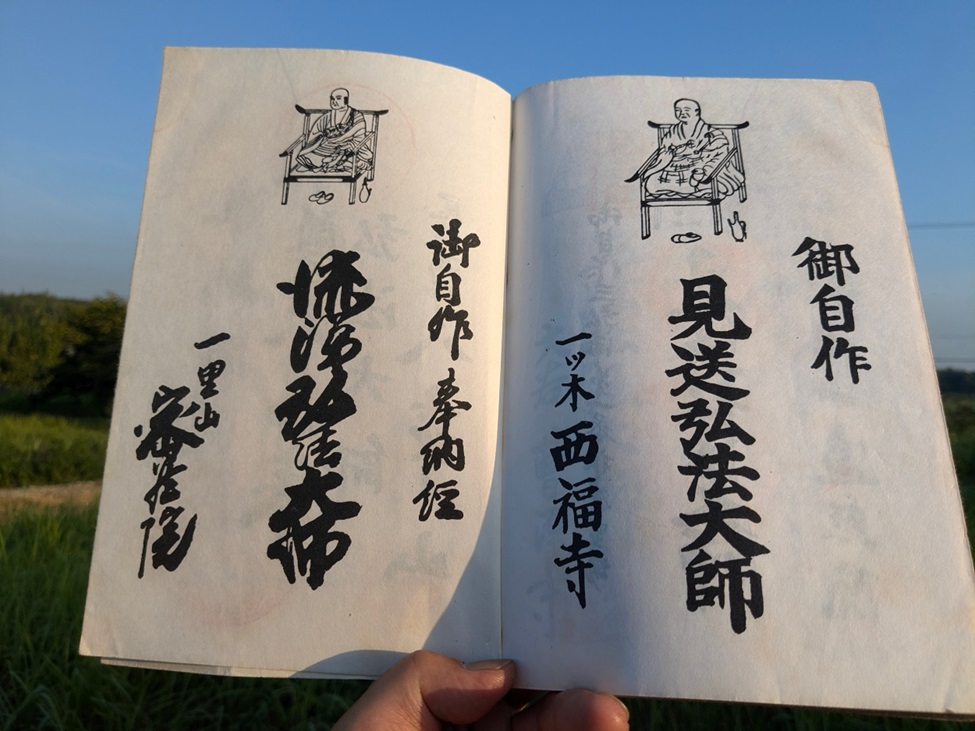 御自作
見送弘法大師
一ッ木 西福寺
御自作 奉納経
流浄弘法大師
一里山 密蔵院